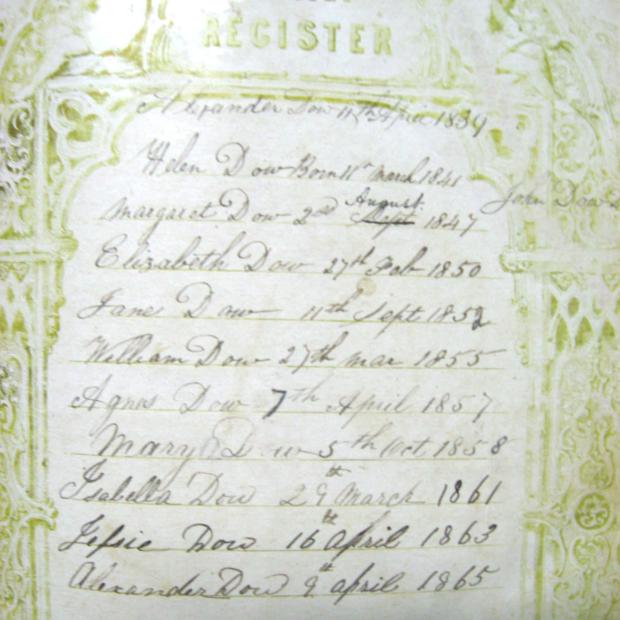 REGISTER
Alexander Dow 11th April 1839
Helen Dow Born 11th March 1841
John Dow
August
Margaret Dow 2nd Sept 1847
Elizabeth Dow 27th Feb 1850
Janes Dow 11th Sept 1852
William Dow 27th mar 1855
Agnes Dow 7th April 1857
Mary Dow 5th Oct 1858
Isabella Dow 29th March 1861
Jessie Dow 16th april 1863
Alexander Dow 9th april 1865